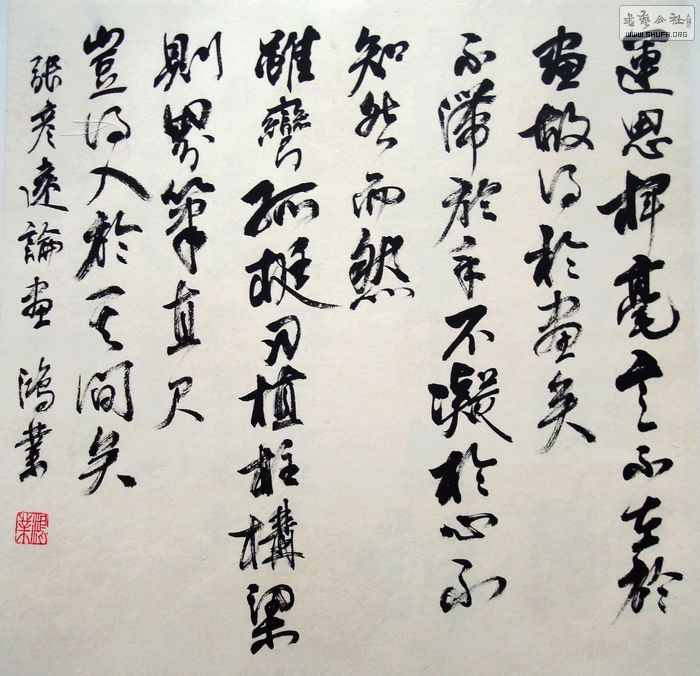 運思揮毫意不在於
畫故得於畫矣
不滯於手不凝於心不
知然而然
雖彎弧挺刃植柱構梁
則界筆直尺
豈得入於其間矣
張彥遠論畫 鴻業
鴻業
書藝公社
WWW.SHUFA.ORG